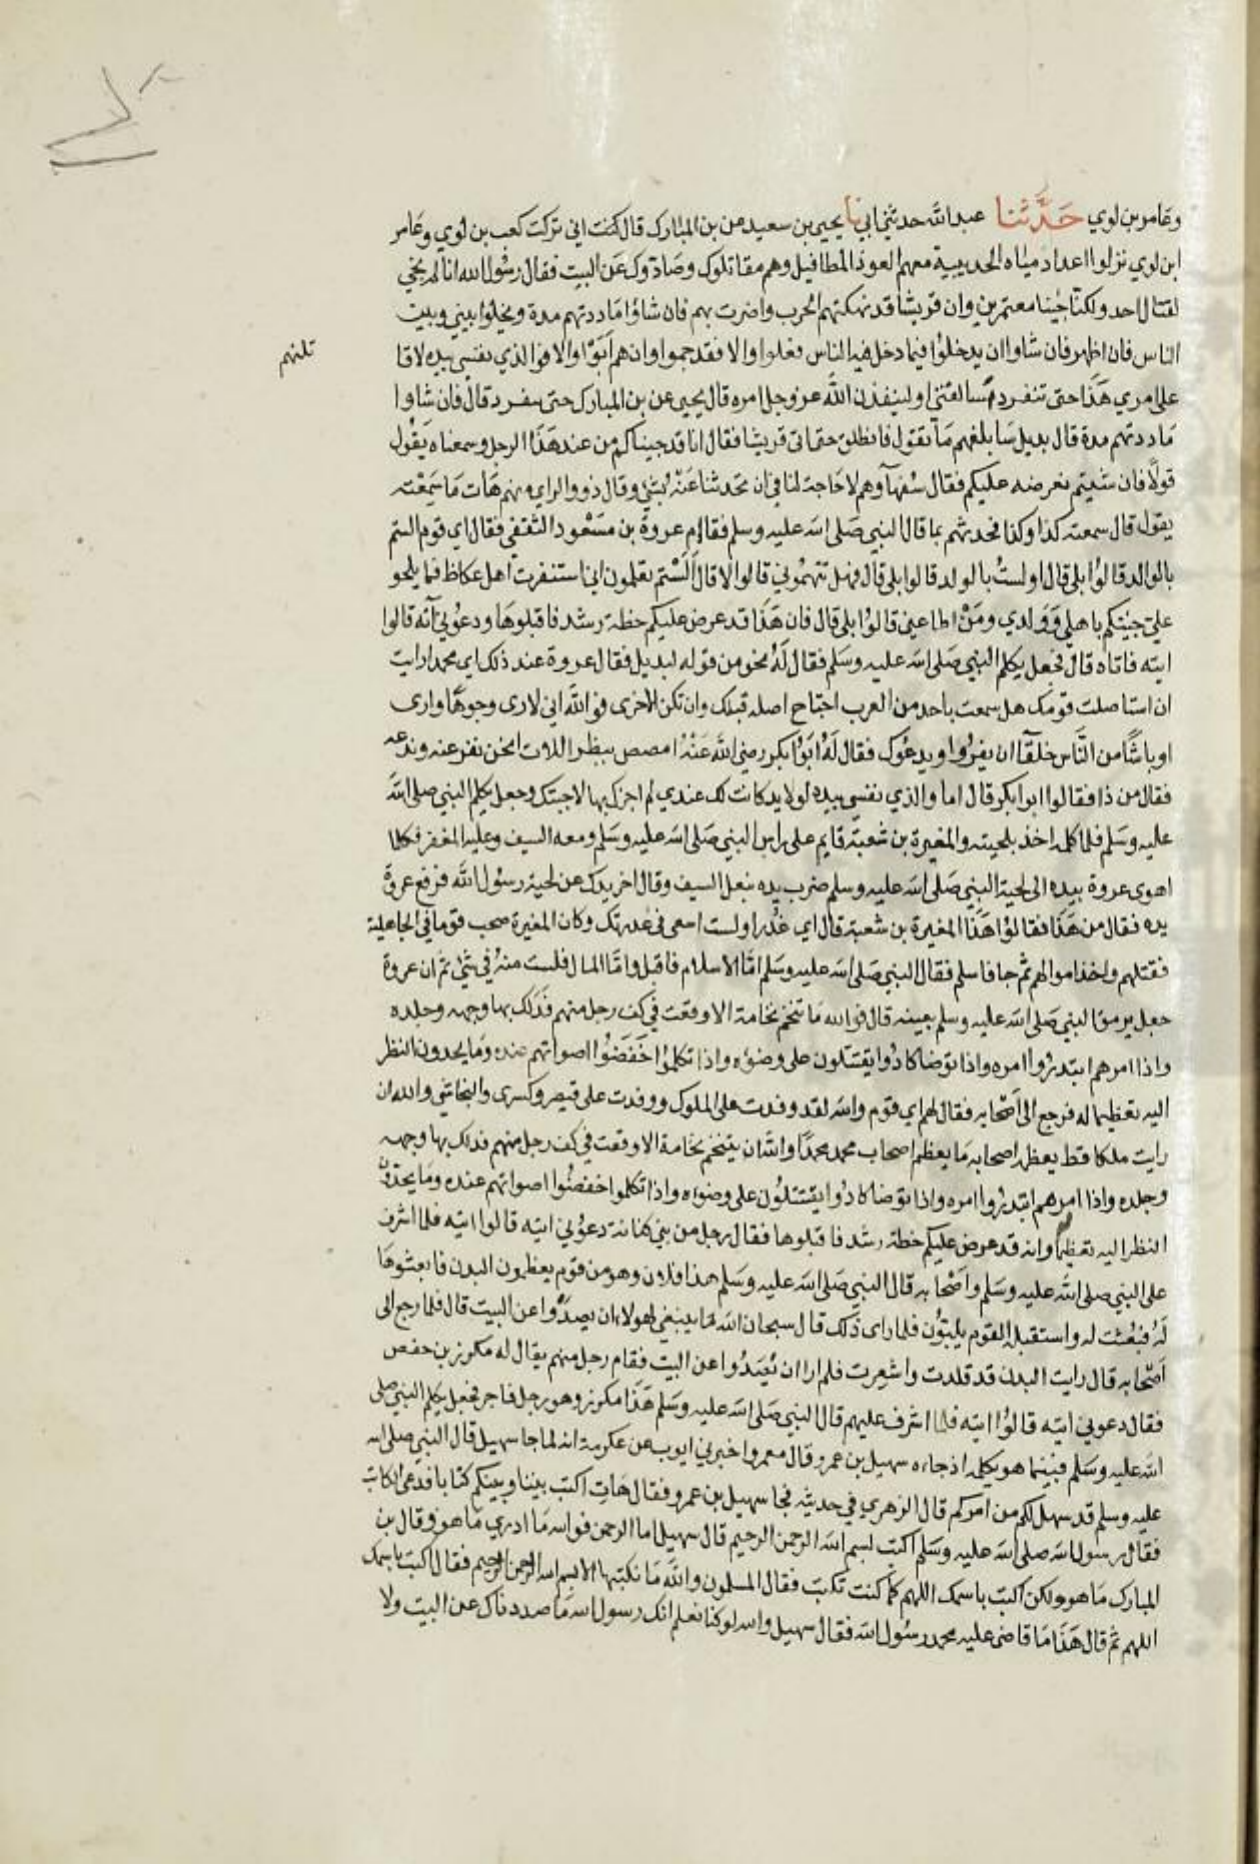 وعامر بن لوي حَدَّثَنا عبد الله حدثني ابي نا يحيى بن سعيد عن بن المبارك قال كنت اني تركت كعب بن لوي وعامر
ابن لوي نزلوا اعداد مياه الحديبية معهم العوذ المطافيل وهم مقاتلوك وصادوك عن البيت فقال رسول الله انا لم نجي
لقتال احد ولكنا جينا معتمرين وان قريشا قد نهكتهم الحرب واضرت بهم فان شاوا ماددتهم مدة ويخلوا بيني وبين
الناس فان اظهر فان شاوا ان يدخلوا فيما دخل فيه الناس فعلوا والا فقد جموا وان هم ابوا والا فوالذي نفسي بيده لاقا
تلنهم
على امري هذا حتى تنفرد سالفتي او لينفذن الله عز وجل امره قال يحيى عن بن المبارك حتى تنفرد قال فان شاوا
ماددتهم مدة قال بديل سابلغهم ما تقول فانطلق حتى اتى قريشا فقال انا قد جيناكم من عند هذا الرجل وسمعناه يقول
قولا فان شيتم نعرضه عليكم فقال سفهاوهم لا حاجة لنا في ان تحدثنا عنه بشي وقال ذوو الراي منهم هات ما سمعته
يقول قال سمعته كذا وكذا فحدثهم بما قال النبي صلى الله عليه وسلم فقام عروة بن مسعود الثقفي فقال اي قوم الستم
بالوالد قالوا بلى قال اولستُ بالولد قالوا بلى قال فهل تتهموني قالوا لا قال ألستم تعلمون اني استنفرت اهل عكاظ فلما بلحو
علي جيتكم باهلي وولدي ومن اطاعني قالوا بلى قال فان هذا قد عرض عليكم خطة رشد فاقبلوها ودعوني آته قالوا
ايته فاتاه قال فجعل يكلم النبي صلى الله عليه وسلم فقال له نحو من قوله لبديل فقال عروة عند ذلك اي محمد ارايت
ان استاصلت قومك هل سمعت باحد من العرب اجتاح اصله قبلك وان تكن الاخرى فوالله اني لارى وجوها وارى
اوباشا من الناس خلقا ان يفروا ويدعوك فقال له ابو بكر رضي الله عنه امصص ببظر اللات انحن نفر عنه وندعه
فقال من ذا فقالوا ابو ابكر قال اما والذي نفسي بيده لولا يد كانت لك عندي لم اجزك بها لاجبتك وجعل يكلم النبي صلى الله
عليه وسلم فلما كلمه اخذ بلحيته والمغيرة بن شعبة قايم على راس النبي صلى الله عليه وسلم ومعه السيف وعليه المغفر فكلما
اهوى عروة بيده الى لحية النبي صلى الله عليه وسلم ضرب يده بنعل السيف وقال اخر يدك عن لحية رسول الله فرفع عروة
يده فقال من هذا فقالوا هذا المغيرة بن شعبة قال اي غدر اولست اسعى في غدرتك وكان المغيرة صحب قوما في الجاهلية
فقتلهم واخذ اموالهم ثم جا فاسلم فقال النبي صلى الله عليه وسلم اما الاسلام فاقبل واما المال فلست منه في شي ثم ان عروة
جعل يرمق النبي صلى الله عليه وسلم بعينه قال فوالله ما تنخم نخامة الا وقعت في كف رجل منهم فدلك بها وجهه وجلده
واذا امرهم ابتدروا امره واذا توضا كادوا يقتتلون على وضوءه واذا تكلموا خفضوا اصواتهم عنده وما يحدون النظر
اليه تعظيما له فرجع الى اصحابه فقال لهم اي قوم والله لقد وفدت على الملوك ووفدت على قيصر وكسرى والنجاشي والله ان
رايت ملكا قط يعظمه اصحابه ما يعظم اصحاب محمد محمدا والله ان يتنخم نخامة الا وقعت في كف رجل منهم فدلك بها وجهه
وجلده واذا امرهم ابتدروا امره واذا توضا كادوا يقتتلون على وضوءه واذا تكلموا خفضوا اصواتهم عنده وما يحدون
النظر اليه تعظيما وانه قد عرض عليكم خطة رشد فاقبلوها فقال رجل من بني كنانة دعوني ايته قالوا ايته فلما اشرف
على النبي صلى الله عليه وسلم واصحابه قال النبي صلى الله عليه وسلم هذا فلان وهو من قوم يعظمون البدن فابعثوها
له فبعثت له واستقبله القوم يلبون فلما راى ذلك قال سبحان الله ما ينبغي لهولاء ان يصدوا عن البيت قال فلما رجع الى
اصحابه قال رايت البدن قد قلدت واشعرت فلم ارا ان يصدوا عن البيت فقام رجل منهم يقال له مكرز بن حفص
فقال دعوني ايته قالوا ايته فلما اشرف عليهم قال النبي صلى الله عليه وسلم هذا مكرز وهو رجل فاجر فجعل يكلم النبي صلى
الله عليه وسلم فبينما هو يكلمه اذ جاءه سهيل بن عمرو قال معمر واخبرني ايوب عن عكرمة انه لما جا سهيل قال النبي صلى الله
عليه وسلم قد سهل لكم من امركم قال الزهري في حديثه فجا سهيل بن عمرو فقال هات اكتب بيننا وبينكم كتابا فدعى الكاتب
فقال رسول الله صلى الله عليه وسلم اكتب بسم الله الرحمن الرحيم قال سهيل اما الرحمن فوالله ما ادري ما هو وقال بن
المبارك ما هو ولكن اكتب باسمك اللهم كما كنت تكتب فقال المسلمون والله ما نكتبها الا بسم الله الرحمن الرحيم فقال اكتب باسمك
اللهم ثم قال هذا ما قاضى عليه محمد رسول الله فقال سهيل والله لو كنا نعلم انك رسول الله ما صددناك عن البيت ولا